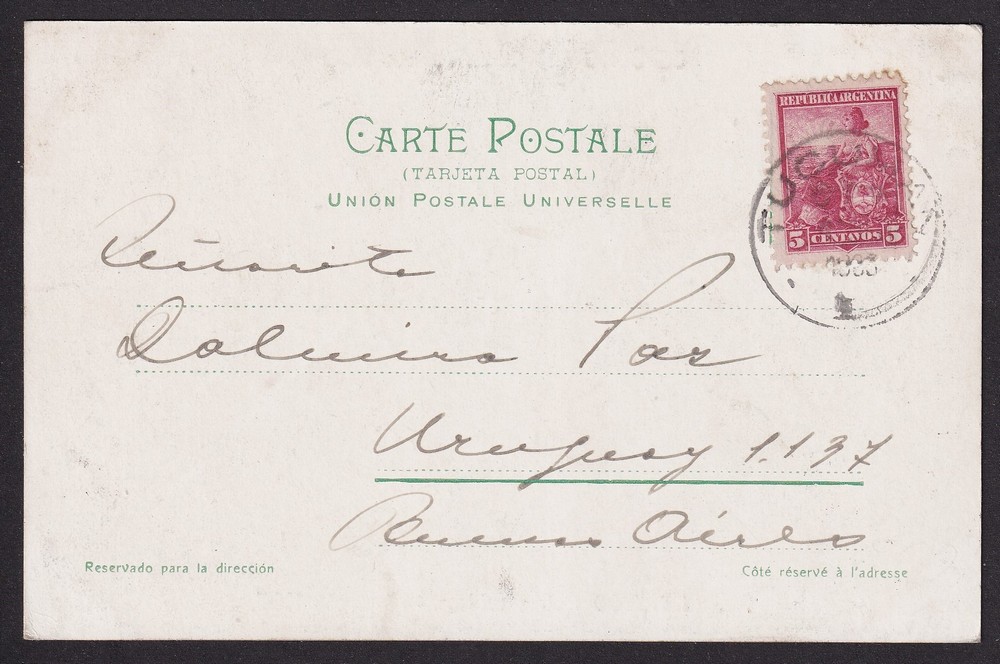 CARTE POSTALE
(TARJETA POSTAL)
UNIÓN POSTALE UNIVERSELLE
REPÚBLICA ARGENTINA
5 CENTAVOS 5
1903
Señorita
Dalmira Paz
Uruguay 1.137
Buenos Aires
Reservado para la dirección
Côté réservé à l'adresse